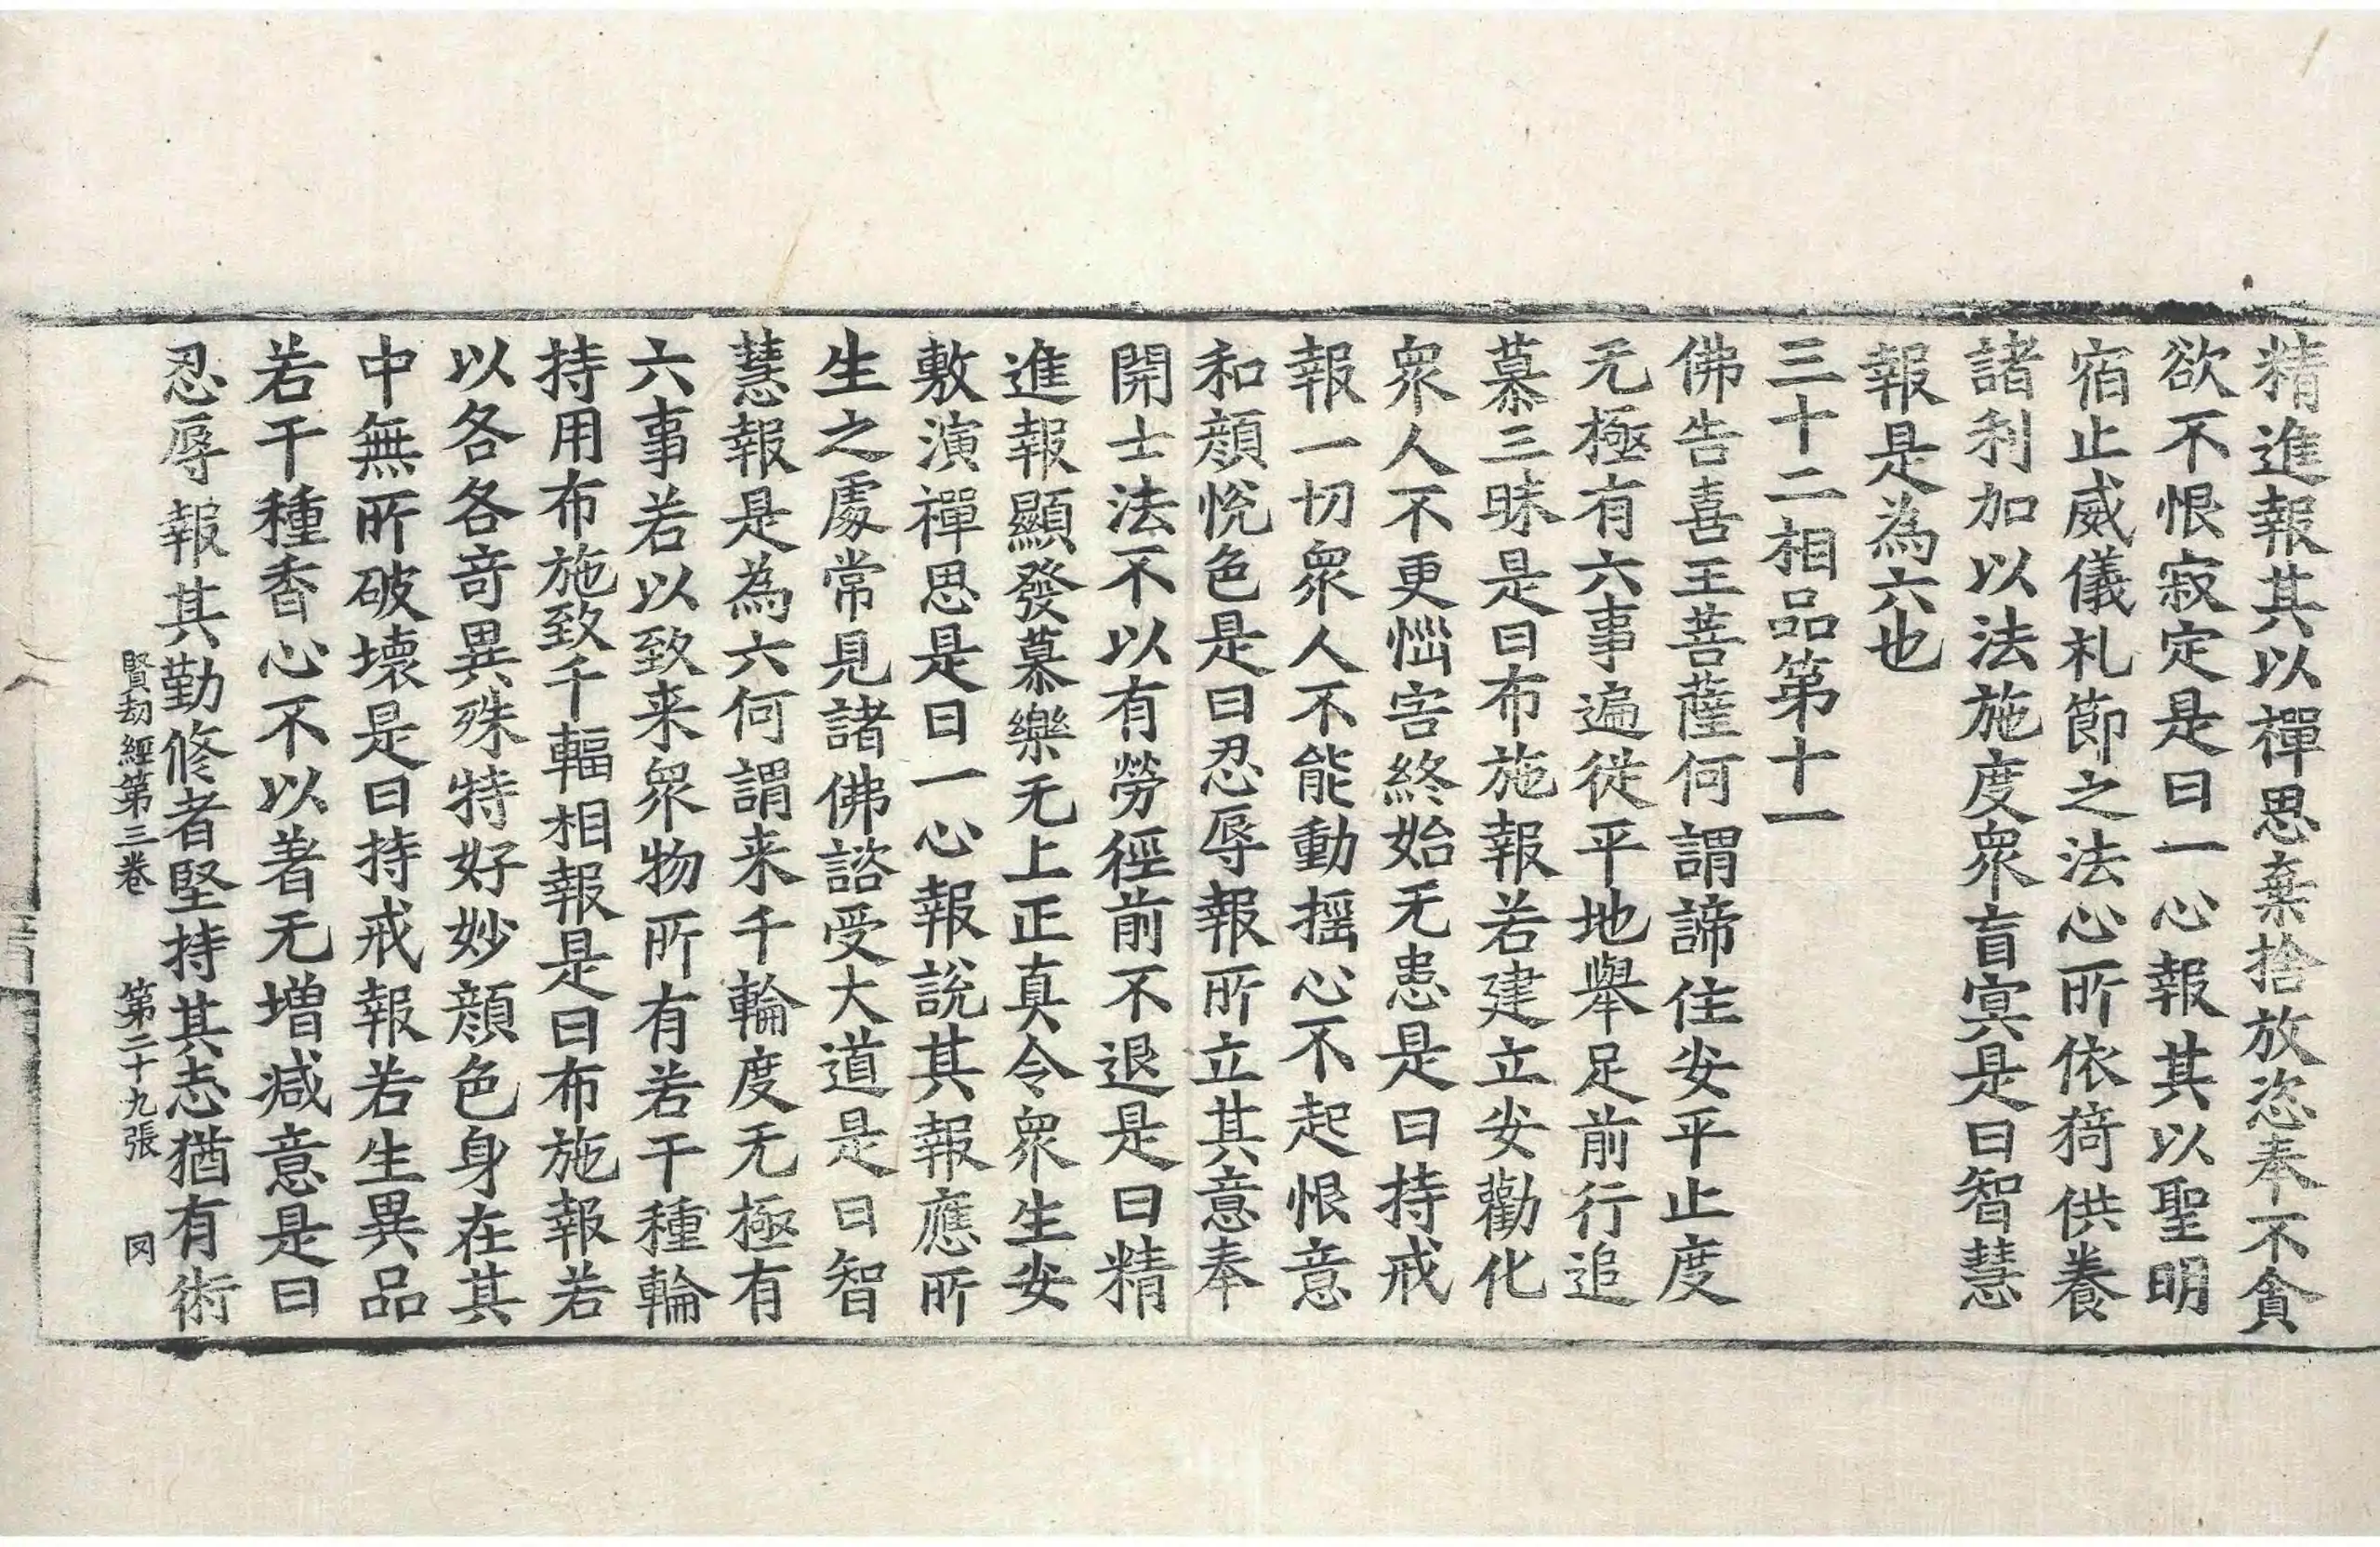 精進報其以禪思棄捨放恣奉不貪
欲不恨寂定是曰一心報其以聖明
宿止威儀礼節之法心所依猗供養
諸利加以法施度衆盲冥是曰智慧
報是為六也
三十二相品第十一
佛告喜王菩薩何謂諦住安平止度
无極有六事遍從平地舉足前行追
慕三昧是曰布施報若建立安勸化
衆人不更惱害終始无患是曰持戒
報一切衆人不能動揺心不起恨意
和顔悅色是曰忍辱報所立其意奉
開士法不以有勞徑前不退是曰精
進報顯發慕樂无上正真令衆生安
敷演禪思是曰一心報說其報應所
生之處常見諸佛諮受大道是曰智
慧報是為六何謂来千輪度无極有
六事若以致来衆物所有若干種輪
持用布施致千輻相報是曰布施報若
以各各奇異殊特好妙顔色身在其
中無所破壞是曰持戒報若生異品
若干種香心不以著无增減意是曰
忍辱報其勤修者堅持其志猶有術
賢劫經第三卷 第二十九張 罔